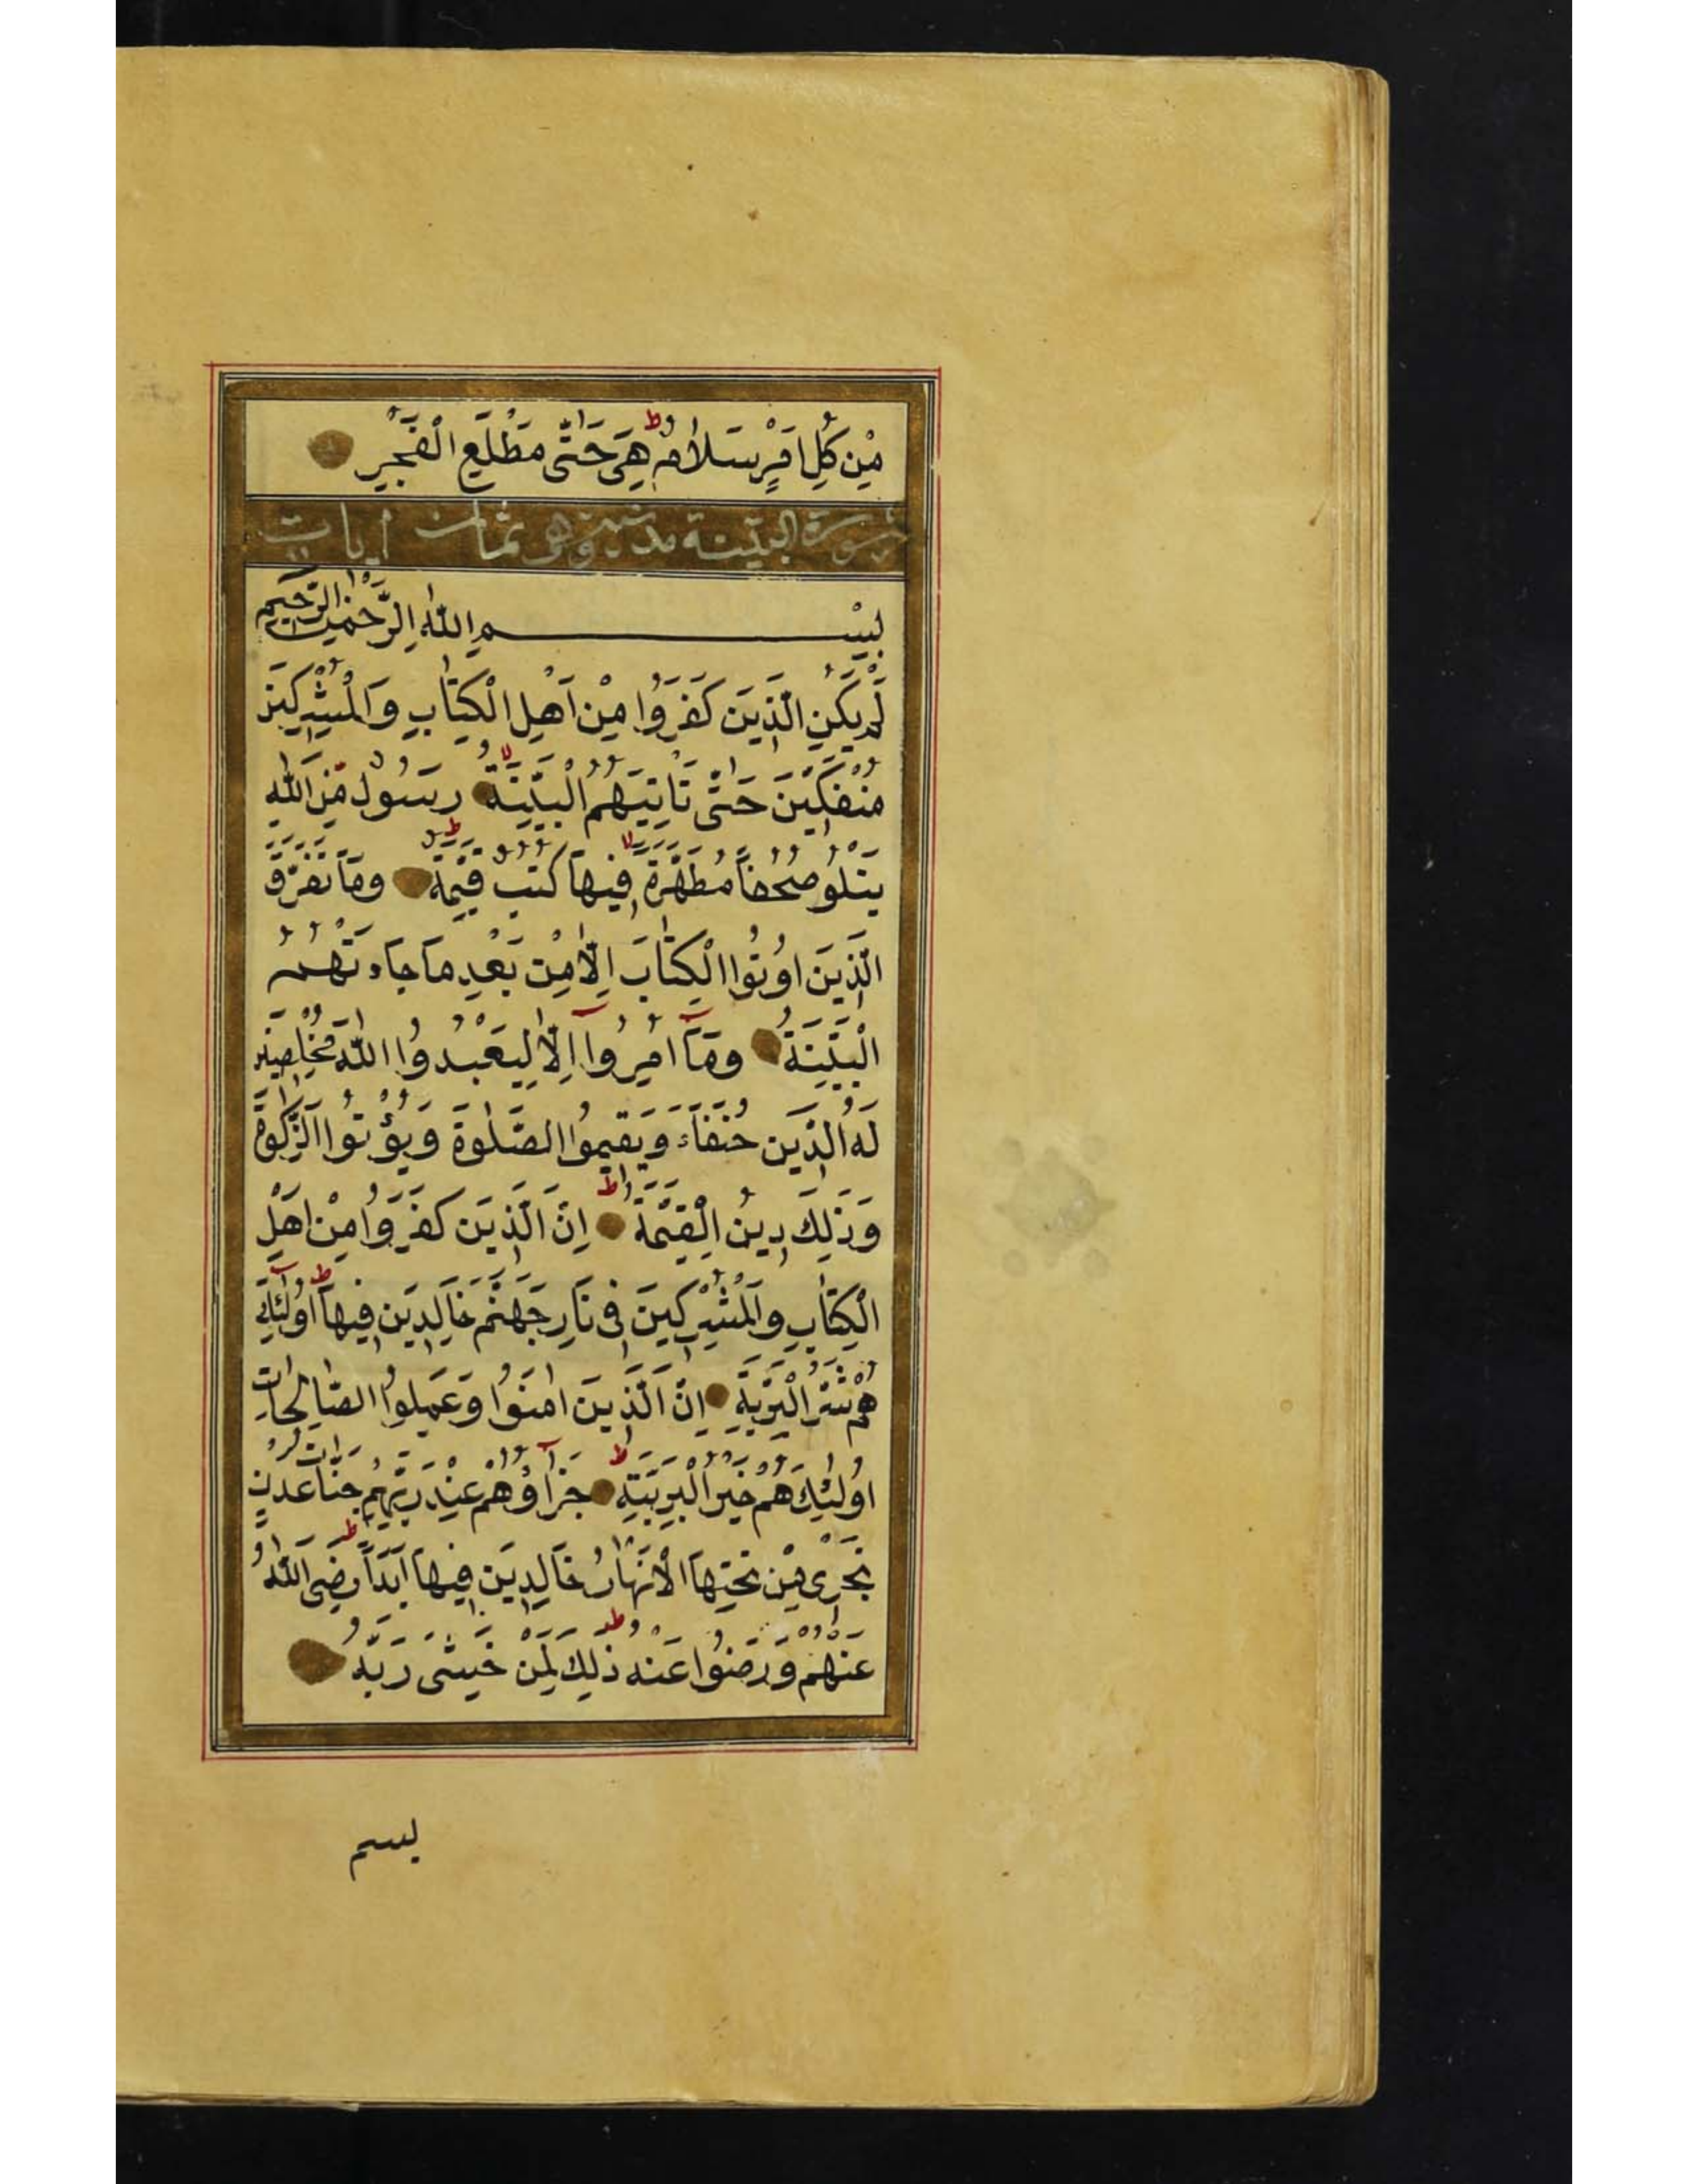 مِنْ كُلِّ اَمْرٍ سَلَامٌ هِيَ حَتّٰى مَطْلَعِ الْفَجْرِ
سورة البينة مدنية وهى ثمان ايات
بِسْمِ اللّٰهِ الرَّحْمٰنِ الرَّحِيمِ
لَمْ يَكُنِ الَّذِينَ كَفَرُوا مِنْ اَهْلِ الْكِتَابِ وَالْمُشْرِكِينَ
مُنْفَكِّينَ حَتّٰى تَاْتِيَهُمُ الْبَيِّنَةُ رَسُولٌ مِّنَ اللّٰهِ
يَتْلُو صُحُفًا مُطَهَّرَةً فِيهَا كُتُبٌ قَيِّمَةٌ وَمَا تَفَرَّقَ
الَّذِينَ اُوتُوا الْكِتَابَ اِلَّا مِنْ بَعْدِ مَا جَاءَتْهُمُ
الْبَيِّنَةُ وَمَآ اُمِرُوآ اِلَّا لِيَعْبُدُوا اللّٰهَ مُخْلِصِينَ
لَهُ الدِّينَ حُنَفَاءَ وَيُقِيمُوا الصَّلٰوةَ وَيُؤْتُوا الزَّكٰوةَ
وَذٰلِكَ دِينُ الْقَيِّمَةِ اِنَّ الَّذِينَ كَفَرُوا مِنْ اَهْلِ
الْكِتَابِ وَالْمُشْرِكِينَ فِى نَارِ جَهَنَّمَ خَالِدِينَ فِيهَا اُولٰئِكَ
هُمْ شَرُّ الْبَرِيَّةِ اِنَّ الَّذِينَ اٰمَنُوا وَعَمِلُوا الصَّالِحَاتِ
اُولٰئِكَ هُمْ خَيْرُ الْبَرِيَّةِ جَزَآؤُهُمْ عِنْدَ رَبِّهِمْ جَنَّاتُ عَدْنٍ
تَجْرِى مِنْ تَحْتِهَا الْاَنْهَارُ خَالِدِينَ فِيهَا اَبَدًا رَضِىَ اللّٰهُ
عَنْهُمْ وَرَضُوا عَنْهُ ذٰلِكَ لِمَنْ خَشِىَ رَبَّهُ
بسم